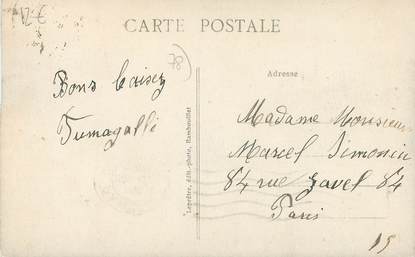 12€
CARTE POSTALE
78
Adresse
Bons baisers
Fumagalli
Lepoître, édit.-photo, Rambouillet
Madame Monsieur
Marcel Simonin
84 rue Javel 84
Paris
15